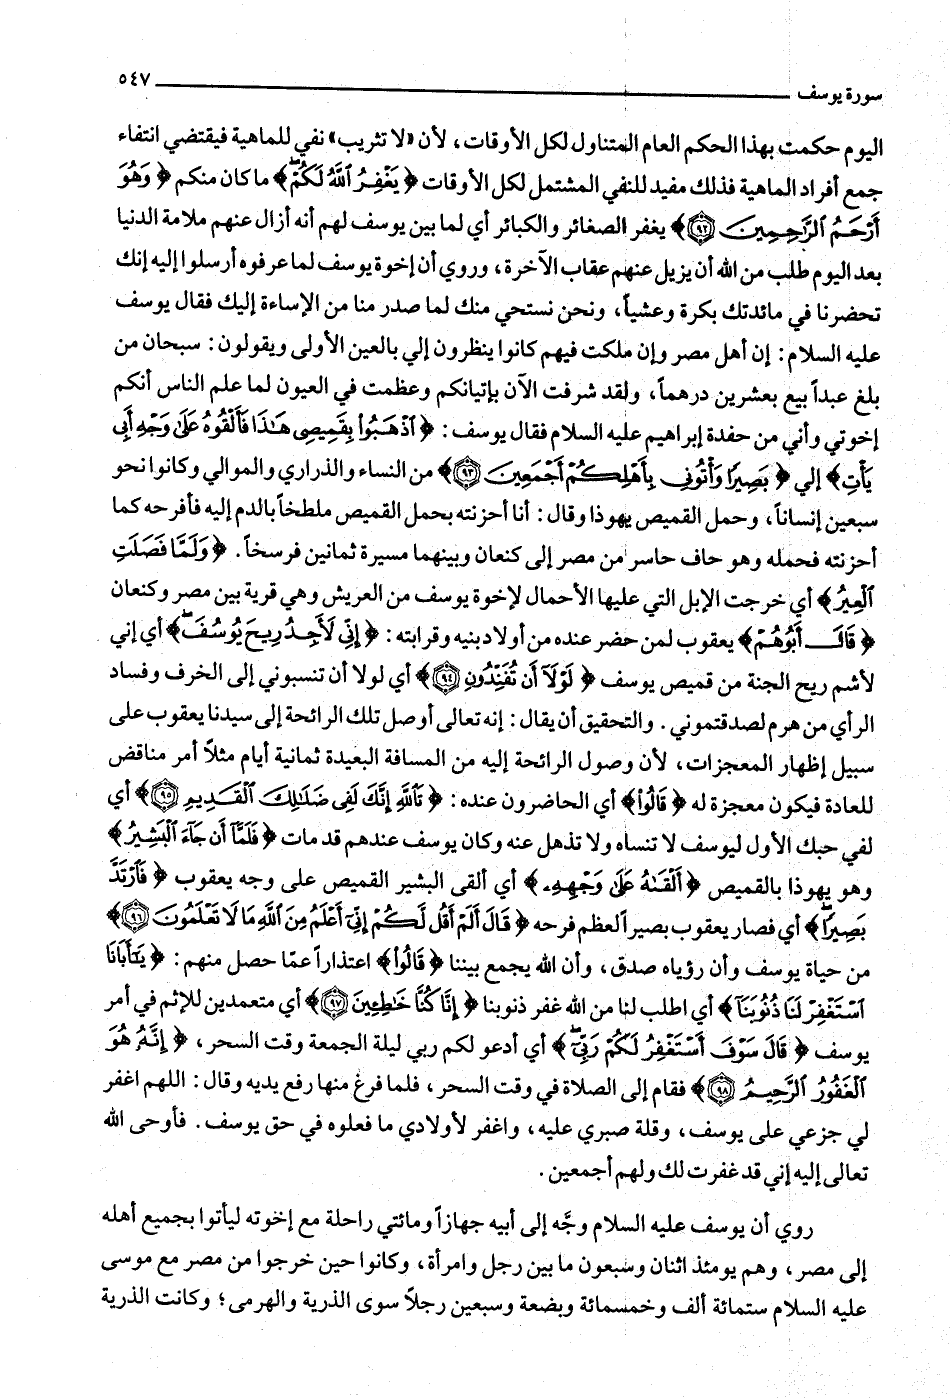 سورة يوسف ٥٤٧
اليوم حكمت بهذا الحكم العام المتناول لكل الأوقات، لأن «لا تثريب» نفي للماهية فيقتضي انتفاء
جمع أفراد الماهية فذلك مفيد للنفي المشتمل لكل الأوقات ﴿ يَغْفِرُ ٱللَّهُ لَكُمْۖ ﴾ ما كان منكم ﴿ وَهُوَ
أَرْحَمُ ٱلرَّٰحِمِينَ ۝٩٢ ﴾ يغفر الصغائر والكبائر أي لما بين يوسف لهم أنه أزال عنهم ملامة الدنيا
بعد اليوم طلب من الله أن يزيل عنهم عقاب الآخرة، وروي أن إخوة يوسف لما عرفوه أرسلوا إليه إنك
تحضرنا في مائدتك بكرة وعشياً، ونحن نستحي منك لما صدر منا من الإساءة إليك فقال يوسف
عليه السلام: إن أهل مصر وإن ملكت فيهم كانوا ينظرون إلي بالعين الأولى ويقولون: سبحان من
بلغ عبداً بيع بعشرين درهماً، ولقد شرفت الآن بإتيانكم وعظمت في العيون لما علم الناس أنكم
إخوتي وأني من حفدة إبراهيم عليه السلام فقال يوسف: ﴿ ٱذْهَبُوا۟ بِقَمِيصِى هَٰذَا فَأَلْقُوهُ عَلَىٰ وَجْهِ أَبِى
يَأْتِ ﴾ إلي ﴿ بَصِيرًا وَأْتُونِى بِأَهْلِكُمْ أَجْمَعِينَ ۝٩٣ ﴾ من النساء والذراري والموالي وكانوا نحو
سبعين إنساناً، وحمل القميص يهوذا وقال: أنا أحزنته بحمل القميص ملطخاً بالدم إليه فأفرحه كما
أحزنته فحمله وهو حاف حاسر من مصر إلى كنعان وبينهما مسيرة ثمانين فرسخاً. ﴿ وَلَمَّا فَصَلَتِ
ٱلْعِيرُ ﴾ أي خرجت الإبل التي عليها الأحمال لإخوة يوسف من العريش وهي قرية بين مصر وكنعان
﴿ قَالَ أَبُوهُمْ ﴾ يعقوب لمن حضر عنده من أولاد بنيه وقرابته: ﴿ إِنِّى لَأَجِدُ رِيحَ يُوسُفَۖ ﴾ أي إني
لأشم ريح الجنة من قميص يوسف ﴿ لَوْلَآ أَن تُفَنِّدُونِ ۝٩٤ ﴾ أي لولا أن تنسبوني إلى الخرف وفساد
الرأي من هرم لصدقتموني. والتحقيق أن يقال: إنه تعالى أوصل تلك الرائحة إلى سيدنا يعقوب على
سبيل إظهار المعجزات، لأن وصول الرائحة إليه من المسافة البعيدة ثمانية أيام مثلاً أمر مناقض
للعادة فيكون معجزة له ﴿ قَالُوا۟ ﴾ أي الحاضرون عنده: ﴿ تَٱللَّهِ إِنَّكَ لَفِى ضَلَٰلِكَ ٱلْقَدِيمِ ۝٩٥ ﴾ أي
لفي حبك الأول ليوسف لا تنساه ولا تذهل عنه وكان يوسف عندهم قد مات ﴿ فَلَمَّآ أَن جَآءَ ٱلْبَشِيرُ ﴾
وهو يهوذا بالقميص ﴿ أَلْقَىٰهُ عَلَىٰ وَجْهِهِۦ ﴾ أي ألقى البشير القميص على وجه يعقوب ﴿ فَٱرْتَدَّ
بَصِيرًاۖ ﴾ أي فصار يعقوب بصيراً لعظم فرحه ﴿ قَالَ أَلَمْ أَقُل لَّكُمْ إِنِّىٓ أَعْلَمُ مِنَ ٱللَّهِ مَا لَا تَعْلَمُونَ ۝٩٦ ﴾
من حياة يوسف وأن رؤياه صدق، وأن الله يجمع بيننا ﴿ قَالُوا۟ ﴾ اعتذاراً عمّا حصل منهم: ﴿ يَٰٓأَبَانَا
ٱسْتَغْفِرْ لَنَا ذُنُوبَنَآ ﴾ أي اطلب لنا من الله غفر ذنوبنا ﴿ إِنَّا كُنَّا خَٰطِـِٔينَ ۝٩٧ ﴾ أي متعمدين للإثم في أمر
يوسف ﴿ قَالَ سَوْفَ أَسْتَغْفِرُ لَكُمْ رَبِّىٓۖ ﴾ أي أدعو لكم ربي ليلة الجمعة وقت السحر، ﴿ إِنَّهُۥ هُوَ
ٱلْغَفُورُ ٱلرَّحِيمُ ۝٩٨ ﴾ فقام إلى الصلاة في وقت السحر، فلما فرغ منها رفع يديه وقال: اللهم اغفر
لي جزعي على يوسف، وقلة صبري عليه، واغفر لأولادي ما فعلوه في حق يوسف. فأوحى الله
تعالى إليه إني قد غفرت لك ولهم أجمعين.
روي أن يوسف عليه السلام وجّه إلى أبيه جهازاً ومائتي راحلة مع إخوته ليأتوا بجميع أهله
إلى مصر، وهم يومئذ اثنان وسبعون ما بين رجل وامرأة، وكانوا حين خرجوا من مصر مع موسى
عليه السلام ستمائة ألف وخمسمائة وبضعة وسبعين رجلاً سوى الذرية والهرمى؛ وكانت الذرية